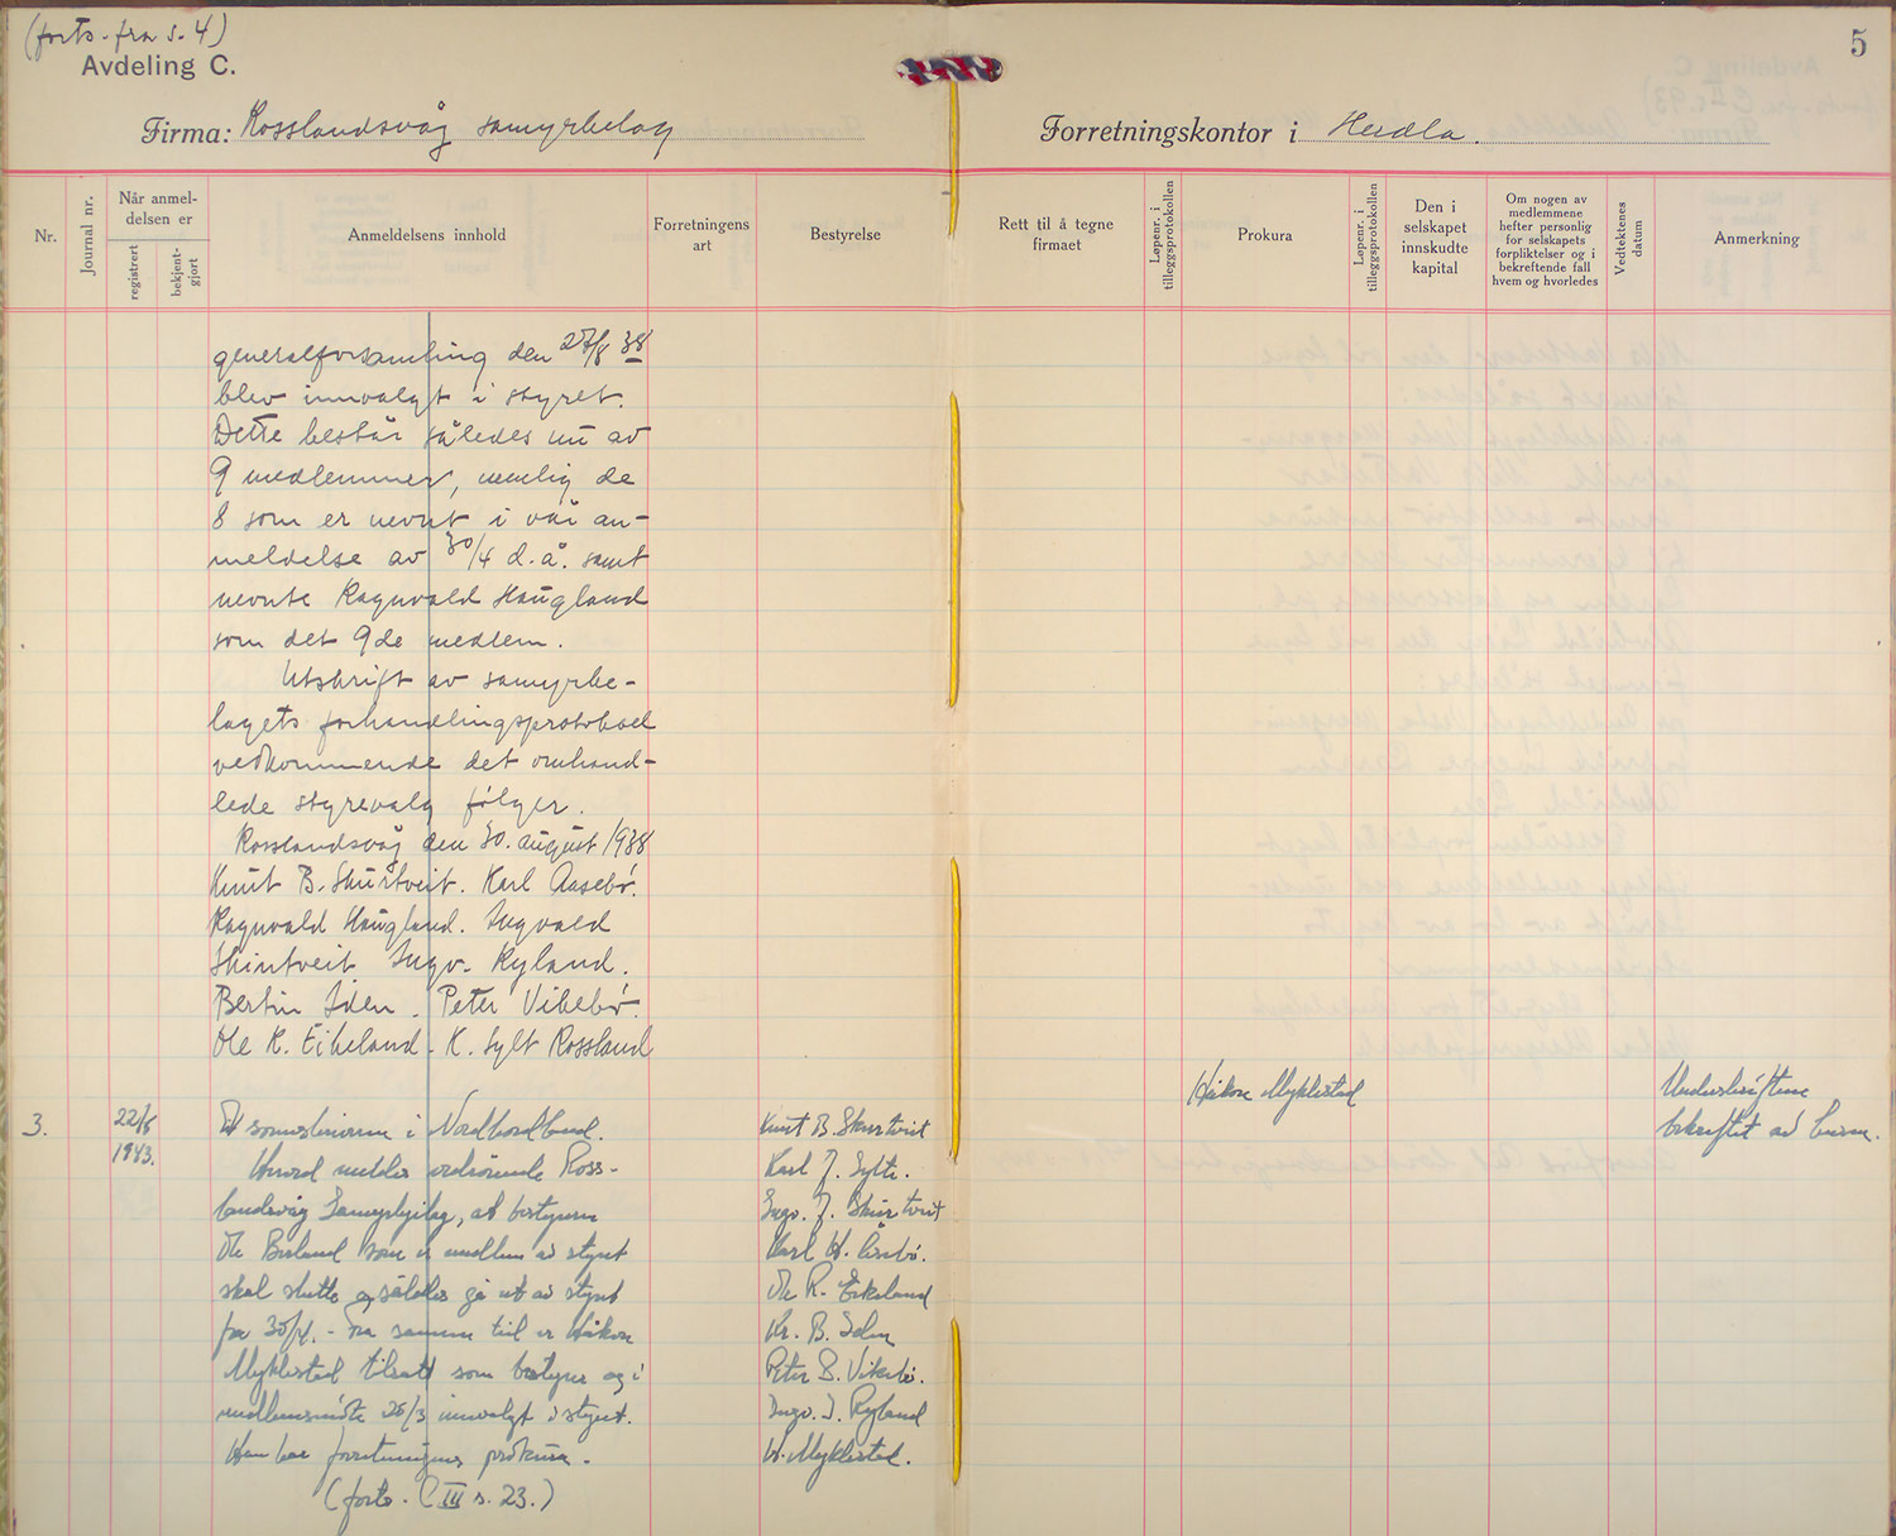 (forts. fra s. 4)
5
Avdeling C.
Firma: Rosslandsvåg samyrkelag
Forretningskontor i Herdla.
Nr.
Journal nr.
Når anmel-
delsen er
registrert
bekjent-
gjort
Anmeldelsens innhold
Forretningens
art
Bestyrelse
Rett til å tegne
firmaet
Løpenr. i
tilleggsprotokollen
Prokura
Løpenr. i
tilleggsprotokollen
Den i
selskapet
innskudte
kapital
Om nogen av
medlemmene
hefter personlig
for selskapets
forpliktelser og i
bekreftende fall
hvem og hvorledes
Vedtektenes
datum
Anmerkning
generalforsamling den 27/8 38
blev innvalgt i styret.
Dette består således nu av
9 medlemmer, nemlig de
8 som er nevnt i vår an-
meldelse av 30/4 d.å. samt
nevnte Ragnvald Haugland
som det 9de medlem.
Utskrift av samyrke-
lagets forhandlingsprotokoll
vedkommende det omhand-
lede styrevalg følger.
Rosslandsvåg den 30. august 1938
Knut B. Skurtveit. Karl Aasebø.
Ragnvald Haugland. Ingvald
Skintveit Ingv. Ryland.
Bertin Iden. Peter Vikebø.
Ole R. Eikeland. K. Sylt Rossland
3.
22/6
1943.
Til sorenskriveren i Nordhordland.
Herved meldes vedrörende Ross-
landsvåg Samyrkjelag, at bestyreren
Ole Birkeland som er medlem av styret
skal slutte og således gå ut av styret
fra 30/4. - Fra samme tid er Håkon
Myklestad tilsatt som bestyrer og i
medlemsmöte 26/3 innvalgt i styret.
Han har forretningens prokura.
(forts. C III s. 23.)
Knut B. Skurtveit
Karl J. Sylte.
Ingv. J. Skurtveit
Karl H. Åsebö.
Ole R. Eikeland
Kr. B. Iden
Peter B. Vikebö.
Ingv. I. Ryland
H. Myklestad.
Håkon Myklestad
Underskriftene
bekreftet av lensm.